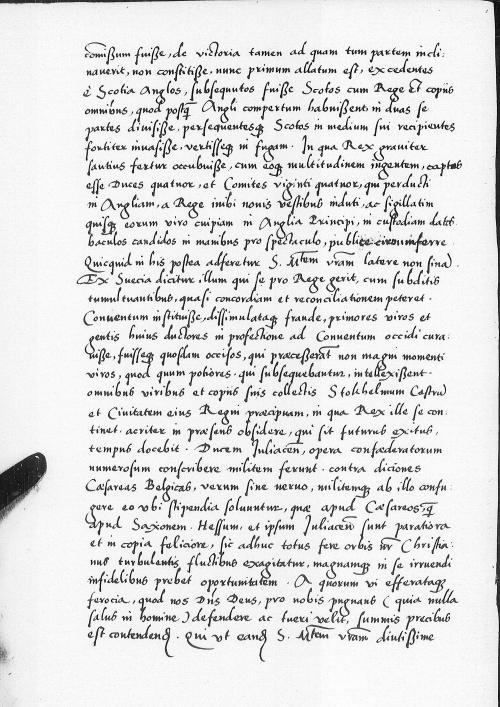 comißum fuiße, de victoria tamen ad quam tum partem incli:
nauerit, non constitiße, nunc primum allatum est, excedentes
è Scotia Anglos, subsequutos fuiße Scotos cum Rege et copijs
omnibus, quod postq̃ Angli compertum habuißent, in duas se
partes diuisiße, persequentesq; Scotos in medium sui recipientes
fortiter inuasiße, vertisseq; in fugam. In qua Rex grauiter
sautius fertur occubuiße, cum eoq; multitudinem ingentem, captos
esse Duces quatuor, et Comites viginti quatuor, qui perducti
in Angliam, a Rege inibi nouis vestibus induti, ac sigillatim
quisq; eorum viro cuipiam in Anglia Principi, in custodiam dati
baculos candidos in manibus pro spectaculo, publice circumferre.
Quicquid in his postea adferetur S. Mtem vram latere non sina
Ex Suecia dicitur, illum qui se pro Rege gerit, cum subditis
tumultuantibus, quasi concordiam et reconciliationem peteret.
Conuentum instituiße, dissimulataq; fraude, primores viros et
gentis huius ductores in profectione ad Conuentum occidi cura:
uiße, fuisseq; quosdam occisos, qui præceßerāt non magni momenti
viros, quod quum potiores, qui subsequebantur, intellexißent.
omnibus viribus et copijs suis collectis Stolkhelmum Castrū
et Ciuitatem eius Regni præcipuam, in qua Rex ille se con
tinet. acriter in præsens obsidere, qui sit futurus exitus,
tempus docebit. Ducem Iuliacen, opera confæderatorum
numerosum conscribere militem ferunt. contra diciones
Cæsareas Belgicas, verum sine neruo, militemq; ab illo confu:
gere eo vbi stipendia soluuntur, quæ apud Cæsareos, q̃
apud Saxonem. Hessum, et ipsum Iuliacen sunt paratiora
et in copia feliciore, sic adhuc totus fere orbis nr Christia:
nus turbulentis fluctibus exagitatur, magnamq; in se irruendi
infidelibus prebet oportunitatem. A quorum vi efferataq;
ferocia, quod nos Dns Deus, pro nobis pugnans (quia nulla
salus in homine) defendere ac tueri velit, summis precibus
est contendend. Qui vt eand S. Mtem vram diutissime